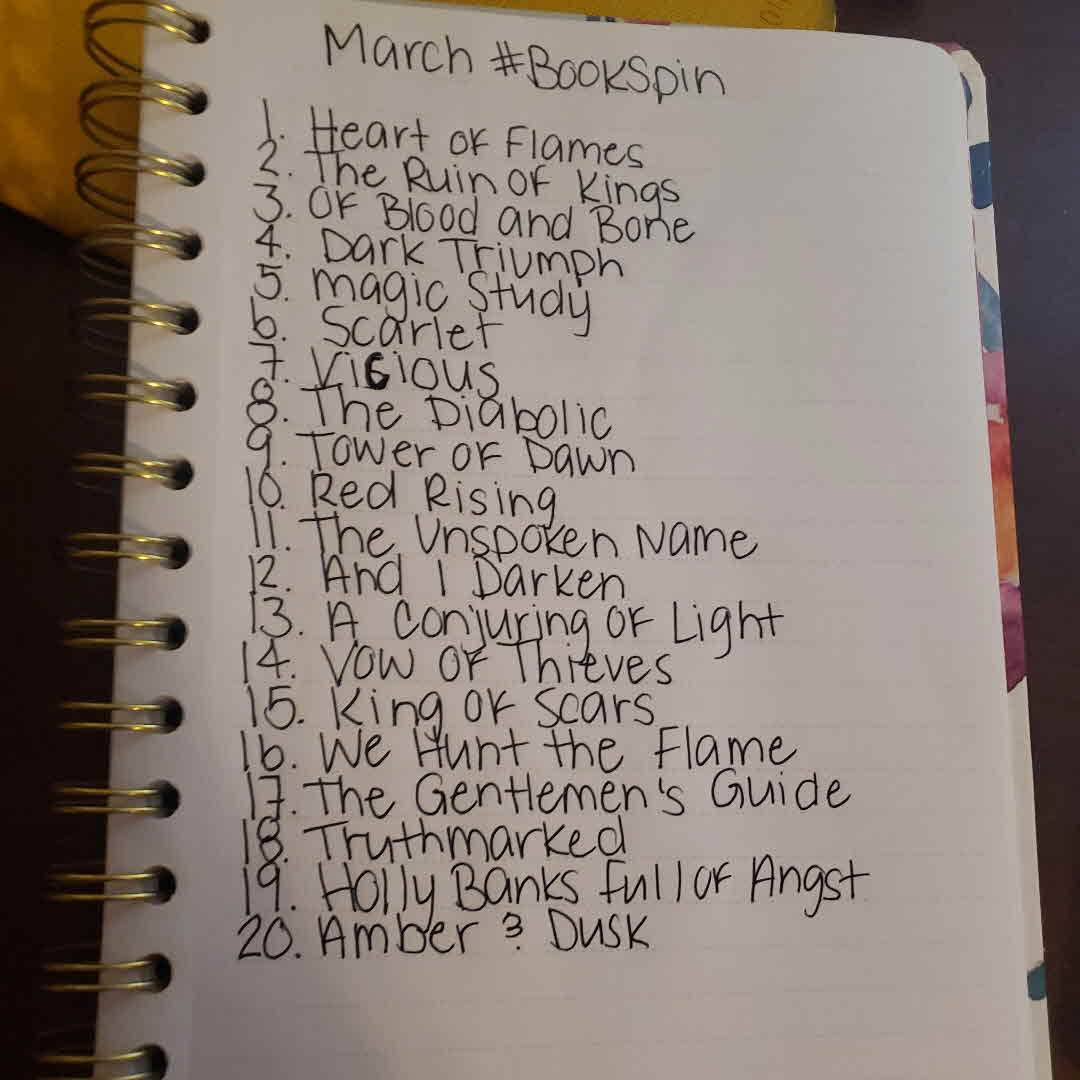 March #BookSpin
1. Heart of Flames
2. The Ruin of Kings
3. Of Blood and Bone
4. Dark Triumph
5. Magic Study
6. Scarlet
7. Vicious
8. The Diabolic
9. Tower of Dawn
10. Red Rising
11. The Unspoken Name
12. And I Darken
13. A Conjuring of Light
14. Vow of Thieves
15. King of Scars
16. We Hunt the Flame
17. The Gentlemen's Guide
18. Truthmarked
19. Holly Banks Full of Angst
20. Amber & Dusk